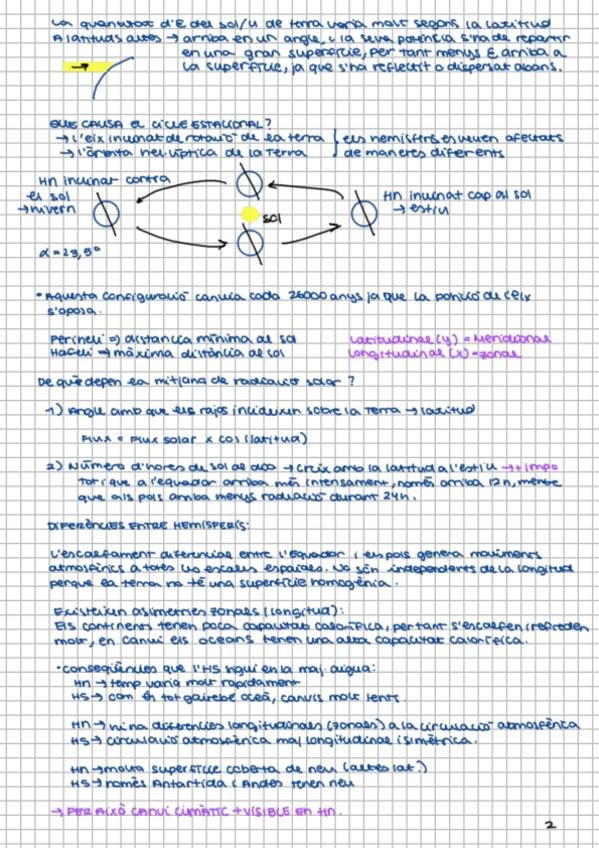 La quantitat d'E del sol/u de terra varia molt segons la latitud
A latituds altes → arriba en un angle, i la seva potència s'ha de repartir
en una gran superfície, per tant menys E arriba a
la superfície, ja que s'ha reflectit o dispersat abans.
QUE CAUSA EL CICLE ESTACIONAL?
→ L'eix inclinat de rotació de la terra } els hemisferis es veuen afectats
→ L'òrbita el·líptica de la Terra de maneres diferents
HN inclinat contra
el sol
→ hivern
sol
HN inclinat cap al sol
→ estiu
α = 23,5º
• Aquesta configuració canvia cada 26000 anys ja que la posició de l'eix
s'oposa.
Periheli ⇒ distància mínima al sol
Hafeli ⇒ màxima distància al sol
Latitudinal (y) = Meridional
Longitudinal (x) = zonal
De què depen la mitjana de radiació solar?
1) Angle amb que els rajos incideixen sobre la Terra → latitud
Flux = Flux solar x cos (latitud)
2) Número d'hores de sol al dia → Creix amb la latitud a l'estiu → + impo
tot i que a l'equador arriba més intensament, només arriba 12h, mentre
que als pols arriba menys radiació durant 24h.
DIFERÈNCIES ENTRE HEMISFERIS:
L'escalfament diferencial entre l'Equador i els pols genera moviments
atmosfèrics a totes les escales espaials. No són independents de la longitud
perque la terra no té una superfície homogènia.
Existeixen asimetries zonals (longitud):
Els continents tenen poca capacitat calorífica, per tant s'escalfen i refreden
molt, en canvi els oceans tenen una alta capacitat calorífica.
• Conseqüències que l'HS sigui en la maj. aigua:
HN → temp varia molt rapidament
HS → com és tot gairebé oceà, canvis molt lents.
HN → hi ha diferències longitudinals (zonals) a la circulació atmosfèrica
HS → circulació atmosfèrica maj longitudinal i simètrica.
HN → molta superfície coberta de neu (altes lat.)
HS → només Antartida i Andes tenen neu
→ PER AIXÒ CANVI CLIMÀTIC + VISIBLE EN HN.
2